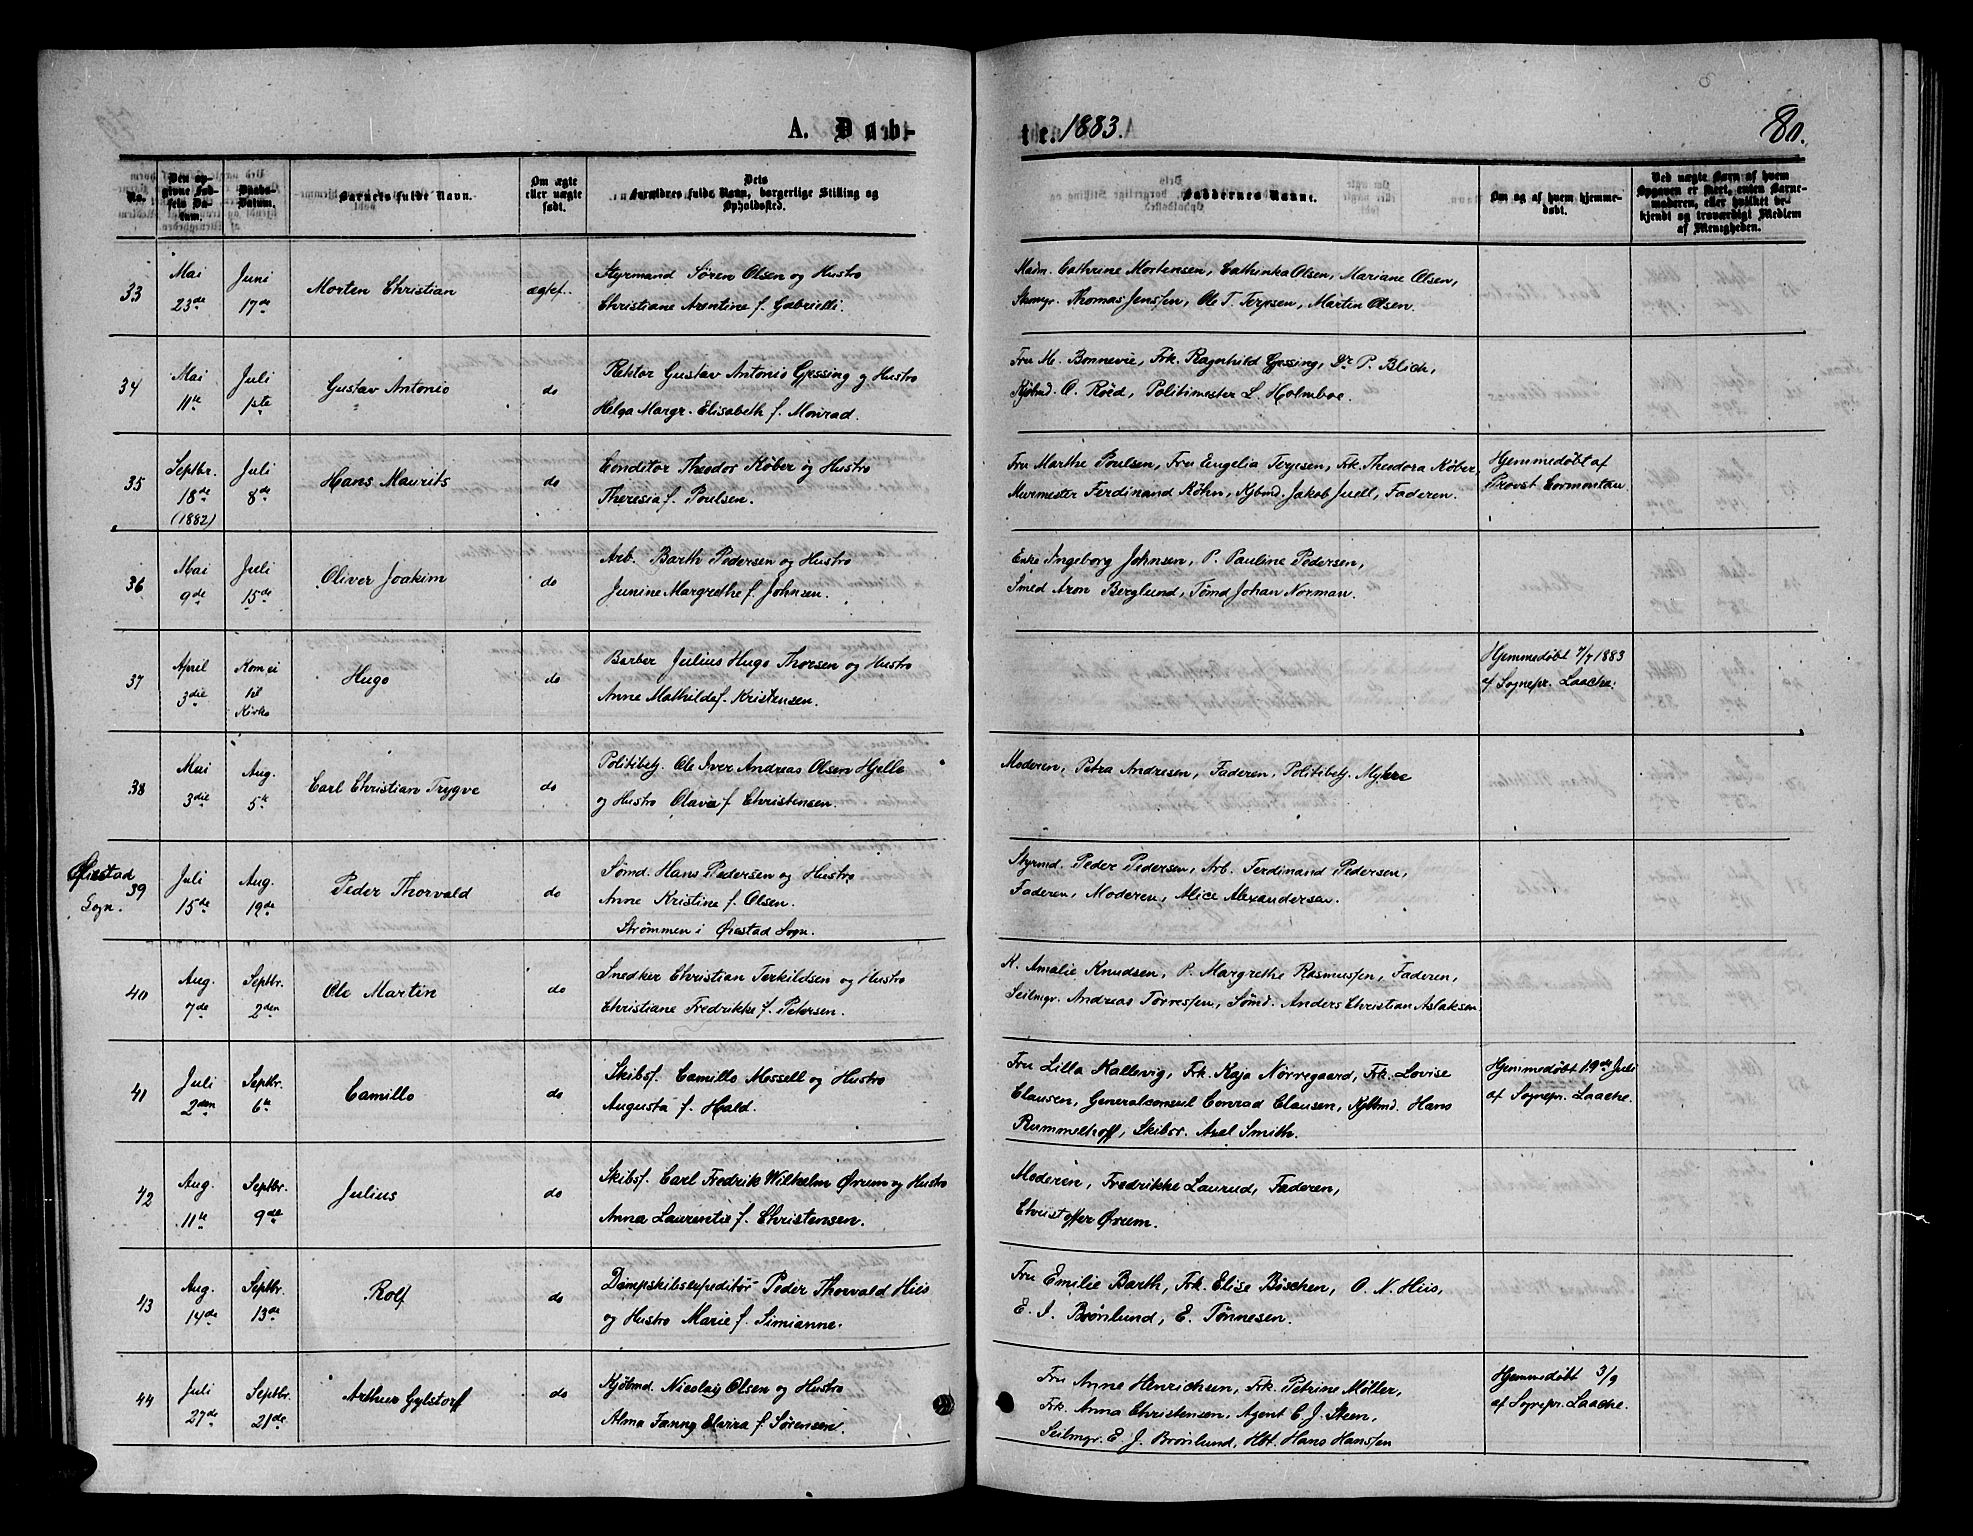 A. Døb-
te. 1883.
80.
No.
Den op-
givne Fød-
sels Da-
tum.
Daabs-
Datum.
Barnets fulde Navn.
Om ægte
eller uægte
født.
Dets
Forældres fulde Navn, borgerlige Stilling og
Opholdssted.
Faddernes Navne.
Om og af hvem hjemme-
døbt.
Ved uægte Børn af hvem
Opgaven er skeet, enten Barne-
moderen, eller hvilket be-
kjendt og troværdigt Medlem
af Menigheden.
33
Mai
23de
Juni
17de
Morten Christian
ægtef.
Styrmand Sören Olsen og Hustro
Christiane Arentine f. Gabrielli.
Madm. Cathrine Mortensen, Cathinka Olsen, Mariane Olsen,
Skomgr. Thomas Jenssen, Ole T. Terjesen, Martin Olsen.
34
Mai
11te
Juli
1ste
Gustav Antonio
do
Rektor Gustav Antonio Gjessing og Hustro
Helga Margr. Elisabeth f. Monrad.
Fru M. Bonnevie, Frk. Ragnhild Gjessing, Dr. P. Blich,
Kjöbmd. O. Röed, Politimester L. Holmboe.
35
Septbr.
18de
(1882)
Juli
8de
Hans Maurits
do
Conditor Theodor Köber og Hustro
Theresia f. Poulsen.
Fru Marthe Poulsen, Fru Engelia Terjesen, Frk. Theodora Köber,
Murmester Ferdinand Köhn, Kjbmd. Jakob Juell, Faderen.
Hjemmedøbt af
Provst Cormontan.
36
Mai
9de
Juli
15de
Oliver Joakim
do
Arb. Barth Pedersen og Hustro
Junine Margrethe f. Johnsen.
Enke Ingeborg Johnsen, P. Pauline Pedersen,
Smed Aron Berglund, Tömd Johan Norman.
37
April
3die
Kom ei
til
Kirke
Hugo
do
Barber Julius Hugo Thorsen og Hustro
Anne Mathilde f. Kristensen.
Hjemmedøbt 7/7 1883
af Sognepr. Laache.
38
Mai
3die
Aug.
5te
Carl Christian Trygve
do
Politibetj. Ole Iver Andreas Olsen Hjelle
og Hustro Olava f. Christensen.
Moderen, Petra Andresen, Faderen, Politibetj. Myhre
Øiestad
Sogn.
39
Juli
15de
Aug.
19de
Peder Thorvald
do
Sømd. Hans Pedersen og Hustro
Anne Kristine f. Olsen.
Strømmen i Øiestad Sogn.
Styrmd. Peder Pedersen, Arb. Ferdinand Pedersen,
Faderen, Moderen, Alice Alexandersen.
40
Aug.
7de
Septbr.
2den
Ole Martin
do
Snedker Christian Terkildsen og Hustro
Christiane Fredrikke f. Petersen.
K. Amalie Knudsen, P. Margrethe Rasmussen, Faderen,
Seilmgr. Andreas Törressen, Sömd. Anders Christian Aslaksen
41
Juli
2den
Septbr.
6te
Camillo
do
Skibsf. Camillo Mossell og Hustro
Augusta f. Hald.
Fru Lilla Kallevig, Frk. Kaja Nörregaard, Frk. Lovise
Clausen, Generalconsul Conrad Clausen, Kjbmd. Hans
Rummelhoff, Skibsr. Axel Smith.
Hjemmedøbt 19de Juli
af Sognepr. Laache.
42
Aug.
11te
Septbr.
9de
Julius
do
Skibsf. Carl Fredrik Wilhelm Ørum og Hustro
Anna Laurentie f. Christensen.
Moderen, Fredrikke Laurud, Faderen,
Christoffer Ørum.
43
Aug.
14de
Septbr.
13de
Rolf
do
Dampskibsexpeditör Peder Thorvald Hiis
og Hustro Marie f. Simianne.
Fru Emilie Barth, Frk. Elise Böschen, O. N. Hiis,
E. I. Brönlund, E. Tönnesen.
44
Juli
27de
Septbr.
21de
Arthur Gylstorff
do
Kjöbmd. Nicolay Olsen og Hustro
Alma Fanny Elvira f. Sørensen.
Fru Anne Henrichsen, Frk. Petrine Möller,
Frk. Anna Christensen, Agent C. J. Steen,
Seilmgr. E. J. Brönlund, Hbt. Hans Hanssen
Hjemmedøbt 3/9
af Sognepr. Laache.